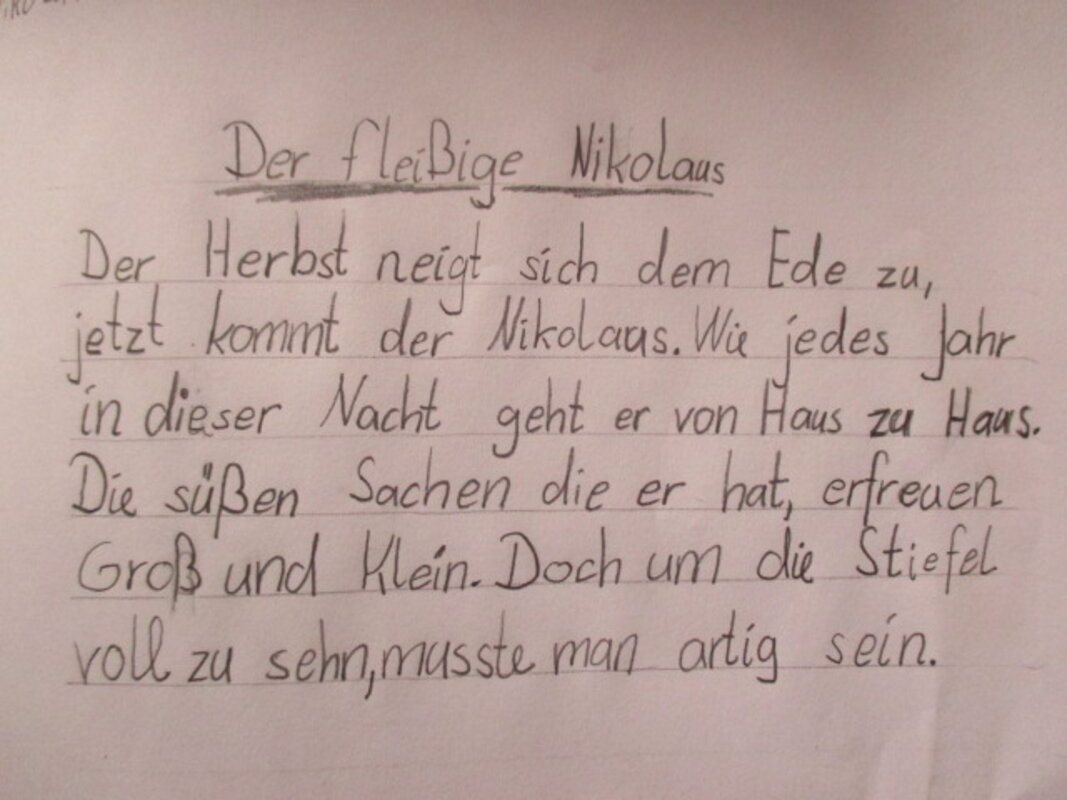 Der fleißige Nikolaus
Der Herbst neigt sich dem Ede zu,
jetzt kommt der Nikolaus. Wie jedes Jahr
in dieser Nacht geht er von Haus zu Haus.
Die süßen Sachen die er hat, erfreuen
Groß und Klein. Doch um die Stiefel
voll zu sehn, musste man artig sein.